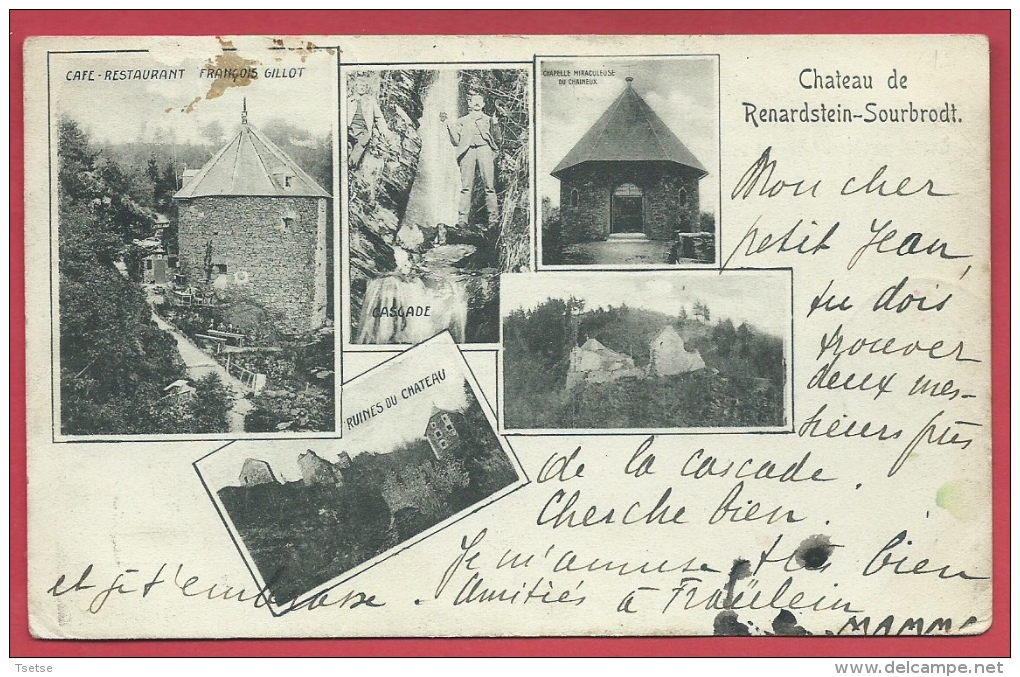 CAFE-RESTAURANT FRANÇOIS GILLOT
CASCADE
CHAPELLE MIRACULEUSE
DU CHAINEUX
RUINES DU CHATEAU
Chateau de
Renardstein-Sourbrodt.
Mon cher
petit Jean,
tu dois
trouver
deux mes-
sieurs près
de la cascade.
Cherche bien.
Je m'amuse très bien
et je t'embrasse. Amitiés à Fraülein
MAMMA
Tsetse
www.delcampe.net